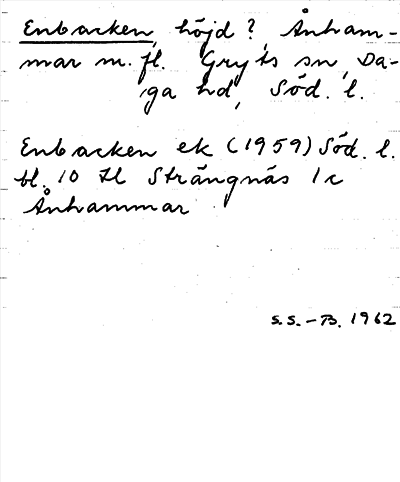 Enbacken, höjd?, Ånham-
mar m. fl. Gryts sn, Da-
ga hd, Söd. l.
Enbacken ek (1959) Söd. l.
bl. 10 H Strängnäs 1c
Ånhammar
S.S.-B. 1962